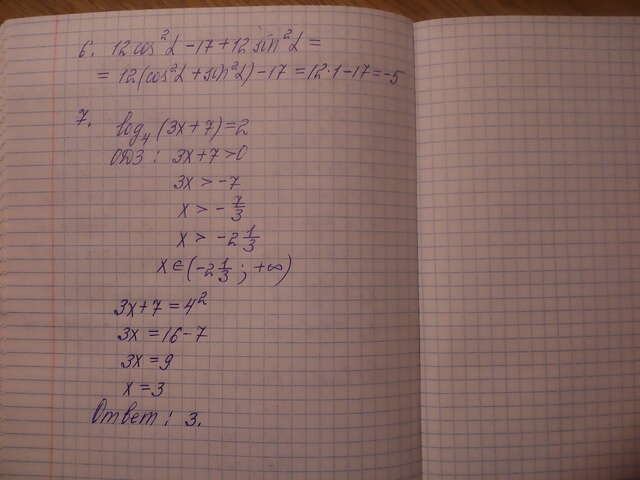 6. 12cos²α - 17 + 12sin²α =
= 12(cos²α + sin²α) - 17 = 12·1 - 17 = -5
7. log₄(3x+7)=2
ОДЗ: 3x+7>0
3x > -7
x > -7/3
x > -2 1/3
x ∈ (-2 1/3; +∞)
3x+7 = 4²
3x = 16-7
3x = 9
x = 3
Ответ: 3.